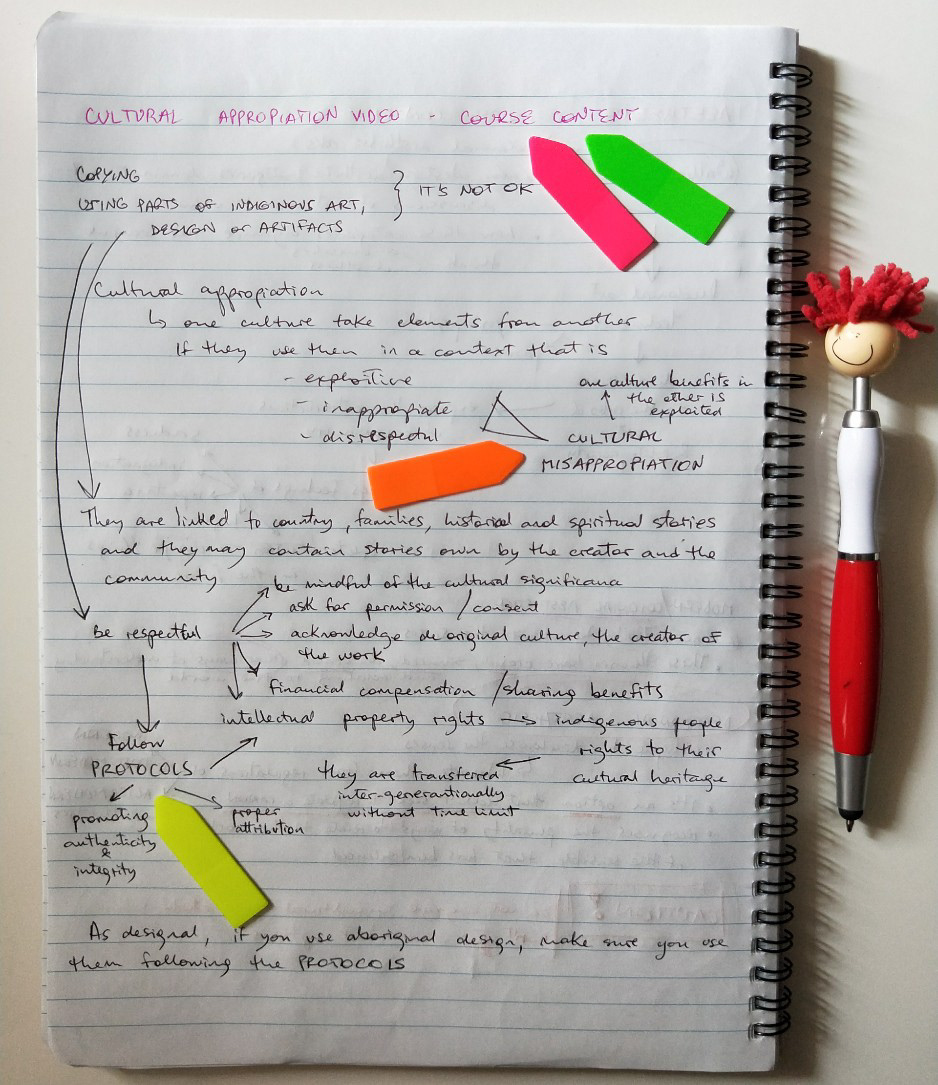 CULTURAL APPROPIATION VIDEO - COURSE CONTENT
COPYING
USING PARTS OF INDIGINOUS ART,
DESIGN or ARTIFACTS
} IT'S NOT OK
Cultural appropiation
↳ one culture take elements from another
If they use them in a context that is
- exploitive
- inappropiate
- disrespectul
one culture benefits in
the other is
exploited
CULTURAL
MISAPPROPIATION
They are linked to country, families, historical and spiritual stories
and they may contain stories own by the creator and the
community
Be respectful
be mindful of the cultural significana
ask for permission / consent
acknowledge de original culture, the creator of
the work
financial compensation / sharing benefits
intellectual property rights → indigenous people
rights to their
cultural heritage
they are transferred
inter-generantionally
without time limit
Follow
PROTOCOLS
promoting
authenticity
&
integrity
proper
attribution
As designal, if you use aboriginal design, make sure you use
them following the PROTOCOLS